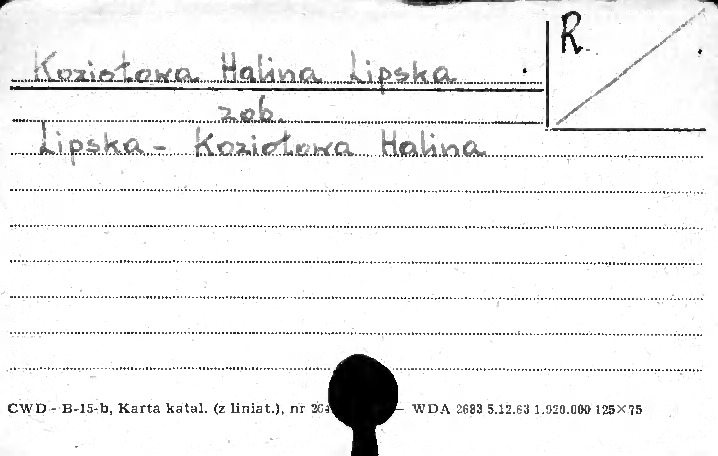 R.
Koziołowa Halina Lipska
zob.
Lipska - Koziołowa Halina
CWD - B-15-b, Karta katal. (z liniat.), nr — WDA 2683 5.12.63 1.920.000 125×75